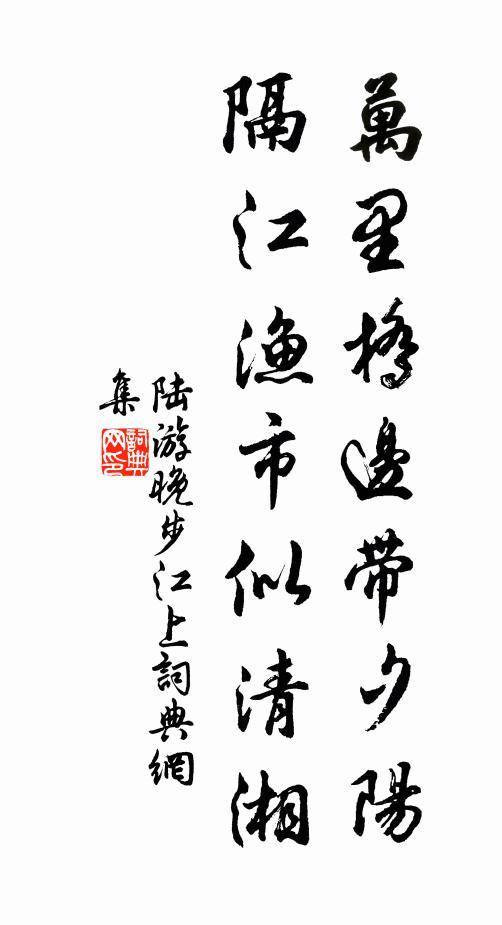 萬里橋邊帶夕陽
隔江漁市似清湘
陆游晚步江上詞典網
集
詞典网印